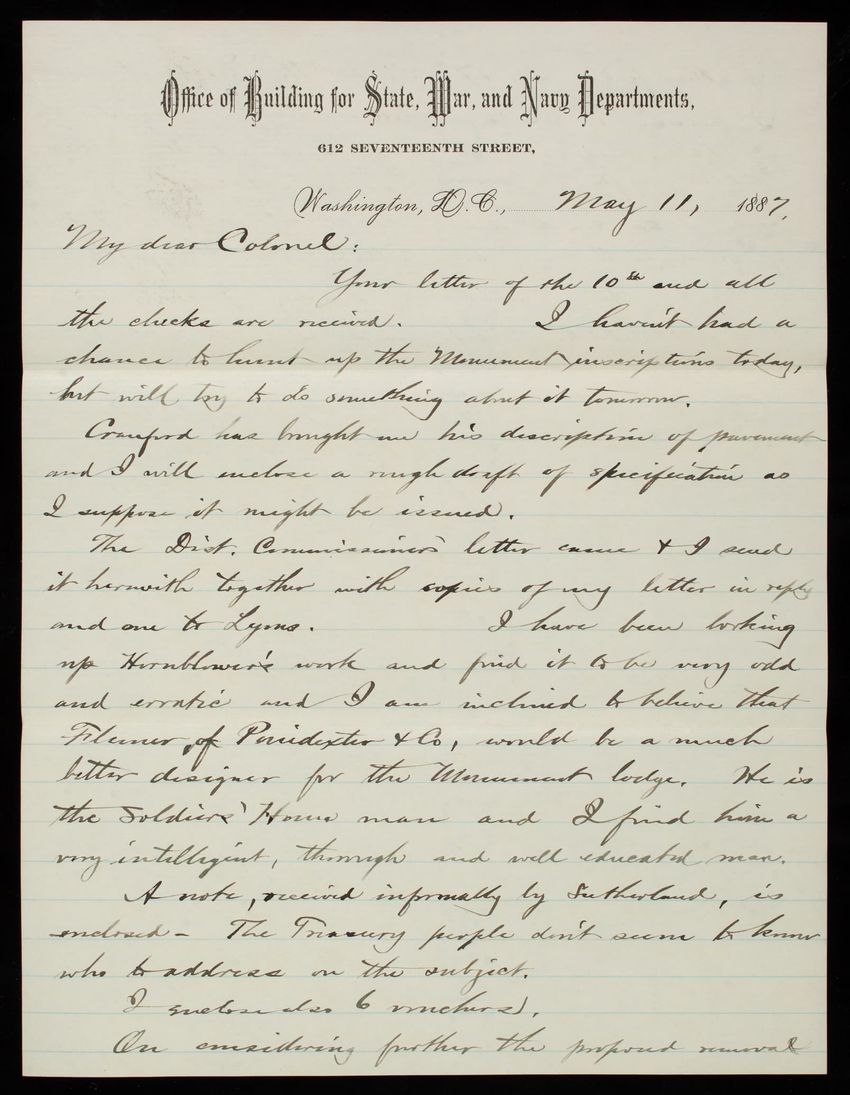 Office of Building for State, War, and Navy Departments,
612 SEVENTEENTH STREET,
Washington, D.C., May 11, 1887.
My dear Colonel:
Your letter of the 10th and all
the checks are received. I haven't had a
chance to hunt up the Monument inscriptions today,
but will try to do something about it tomorrow.
Cranford has brought me his description of pavement
and I will enclose a rough draft of specification as
I suppose it might be issued.
The Dist. Commissioners' letter came & I send
it herewith together with copies of my letter in reply
and one to Lyons. I have been looking
up Hornblower's work and find it to be very odd
and erratic and I am inclined to believe that
Flemer, of Poindexter & Co, would be a much
better designer for the Monument lodge. He is
the Soldiers' Home man and I find him a
very intelligent, thorough and well educated man.
A note, received informally by Sutherland, is
enclosed - The Treasury people don't seem to know
who to address on the subject.
I enclose also 6 vouchers.
On considering further the proposed removal